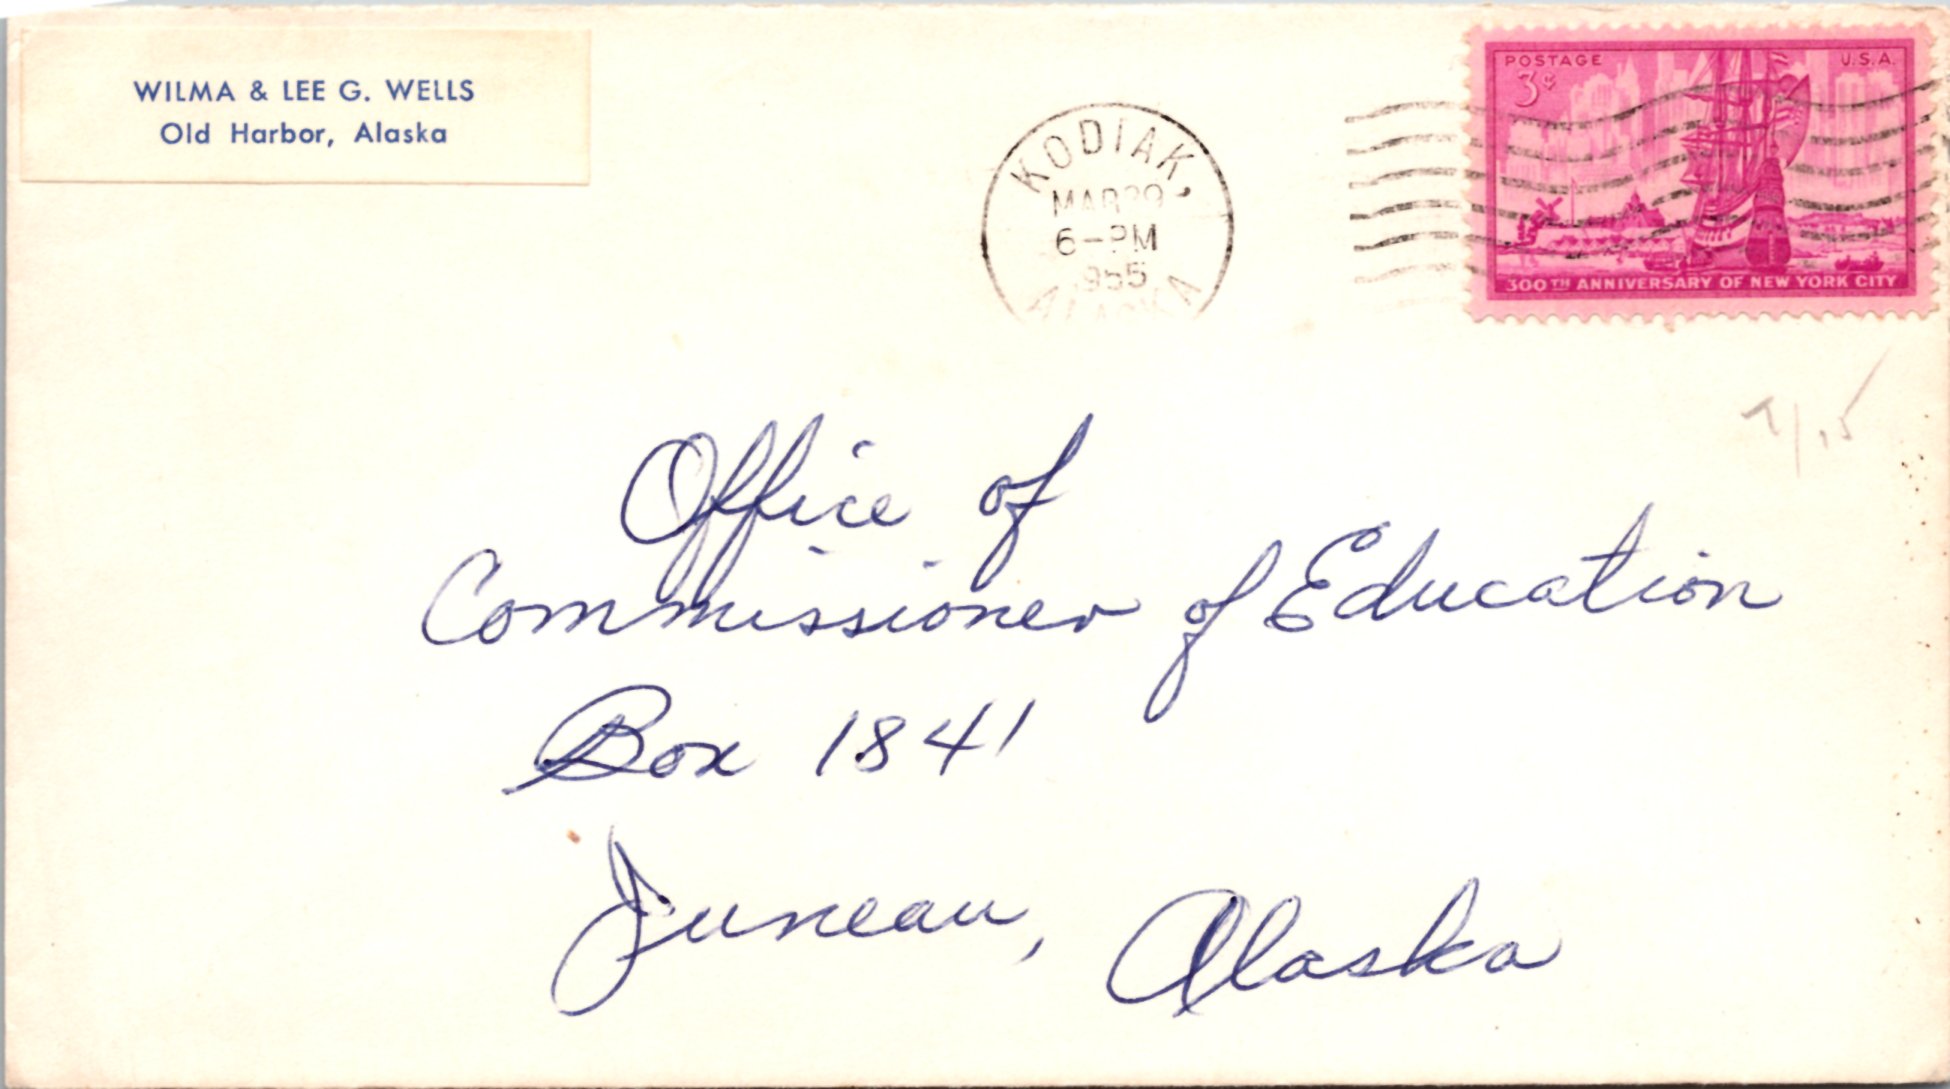 WILMA & LEE G. WELLS
Old Harbor, Alaska
KODIAK,
6-PM
1955
ALASKA
POSTAGE U.S.A.
3¢
300TH ANNIVERSARY OF NEW YORK CITY
Office of
Commissioner of Education
Box 1841
Juneau, Alaska